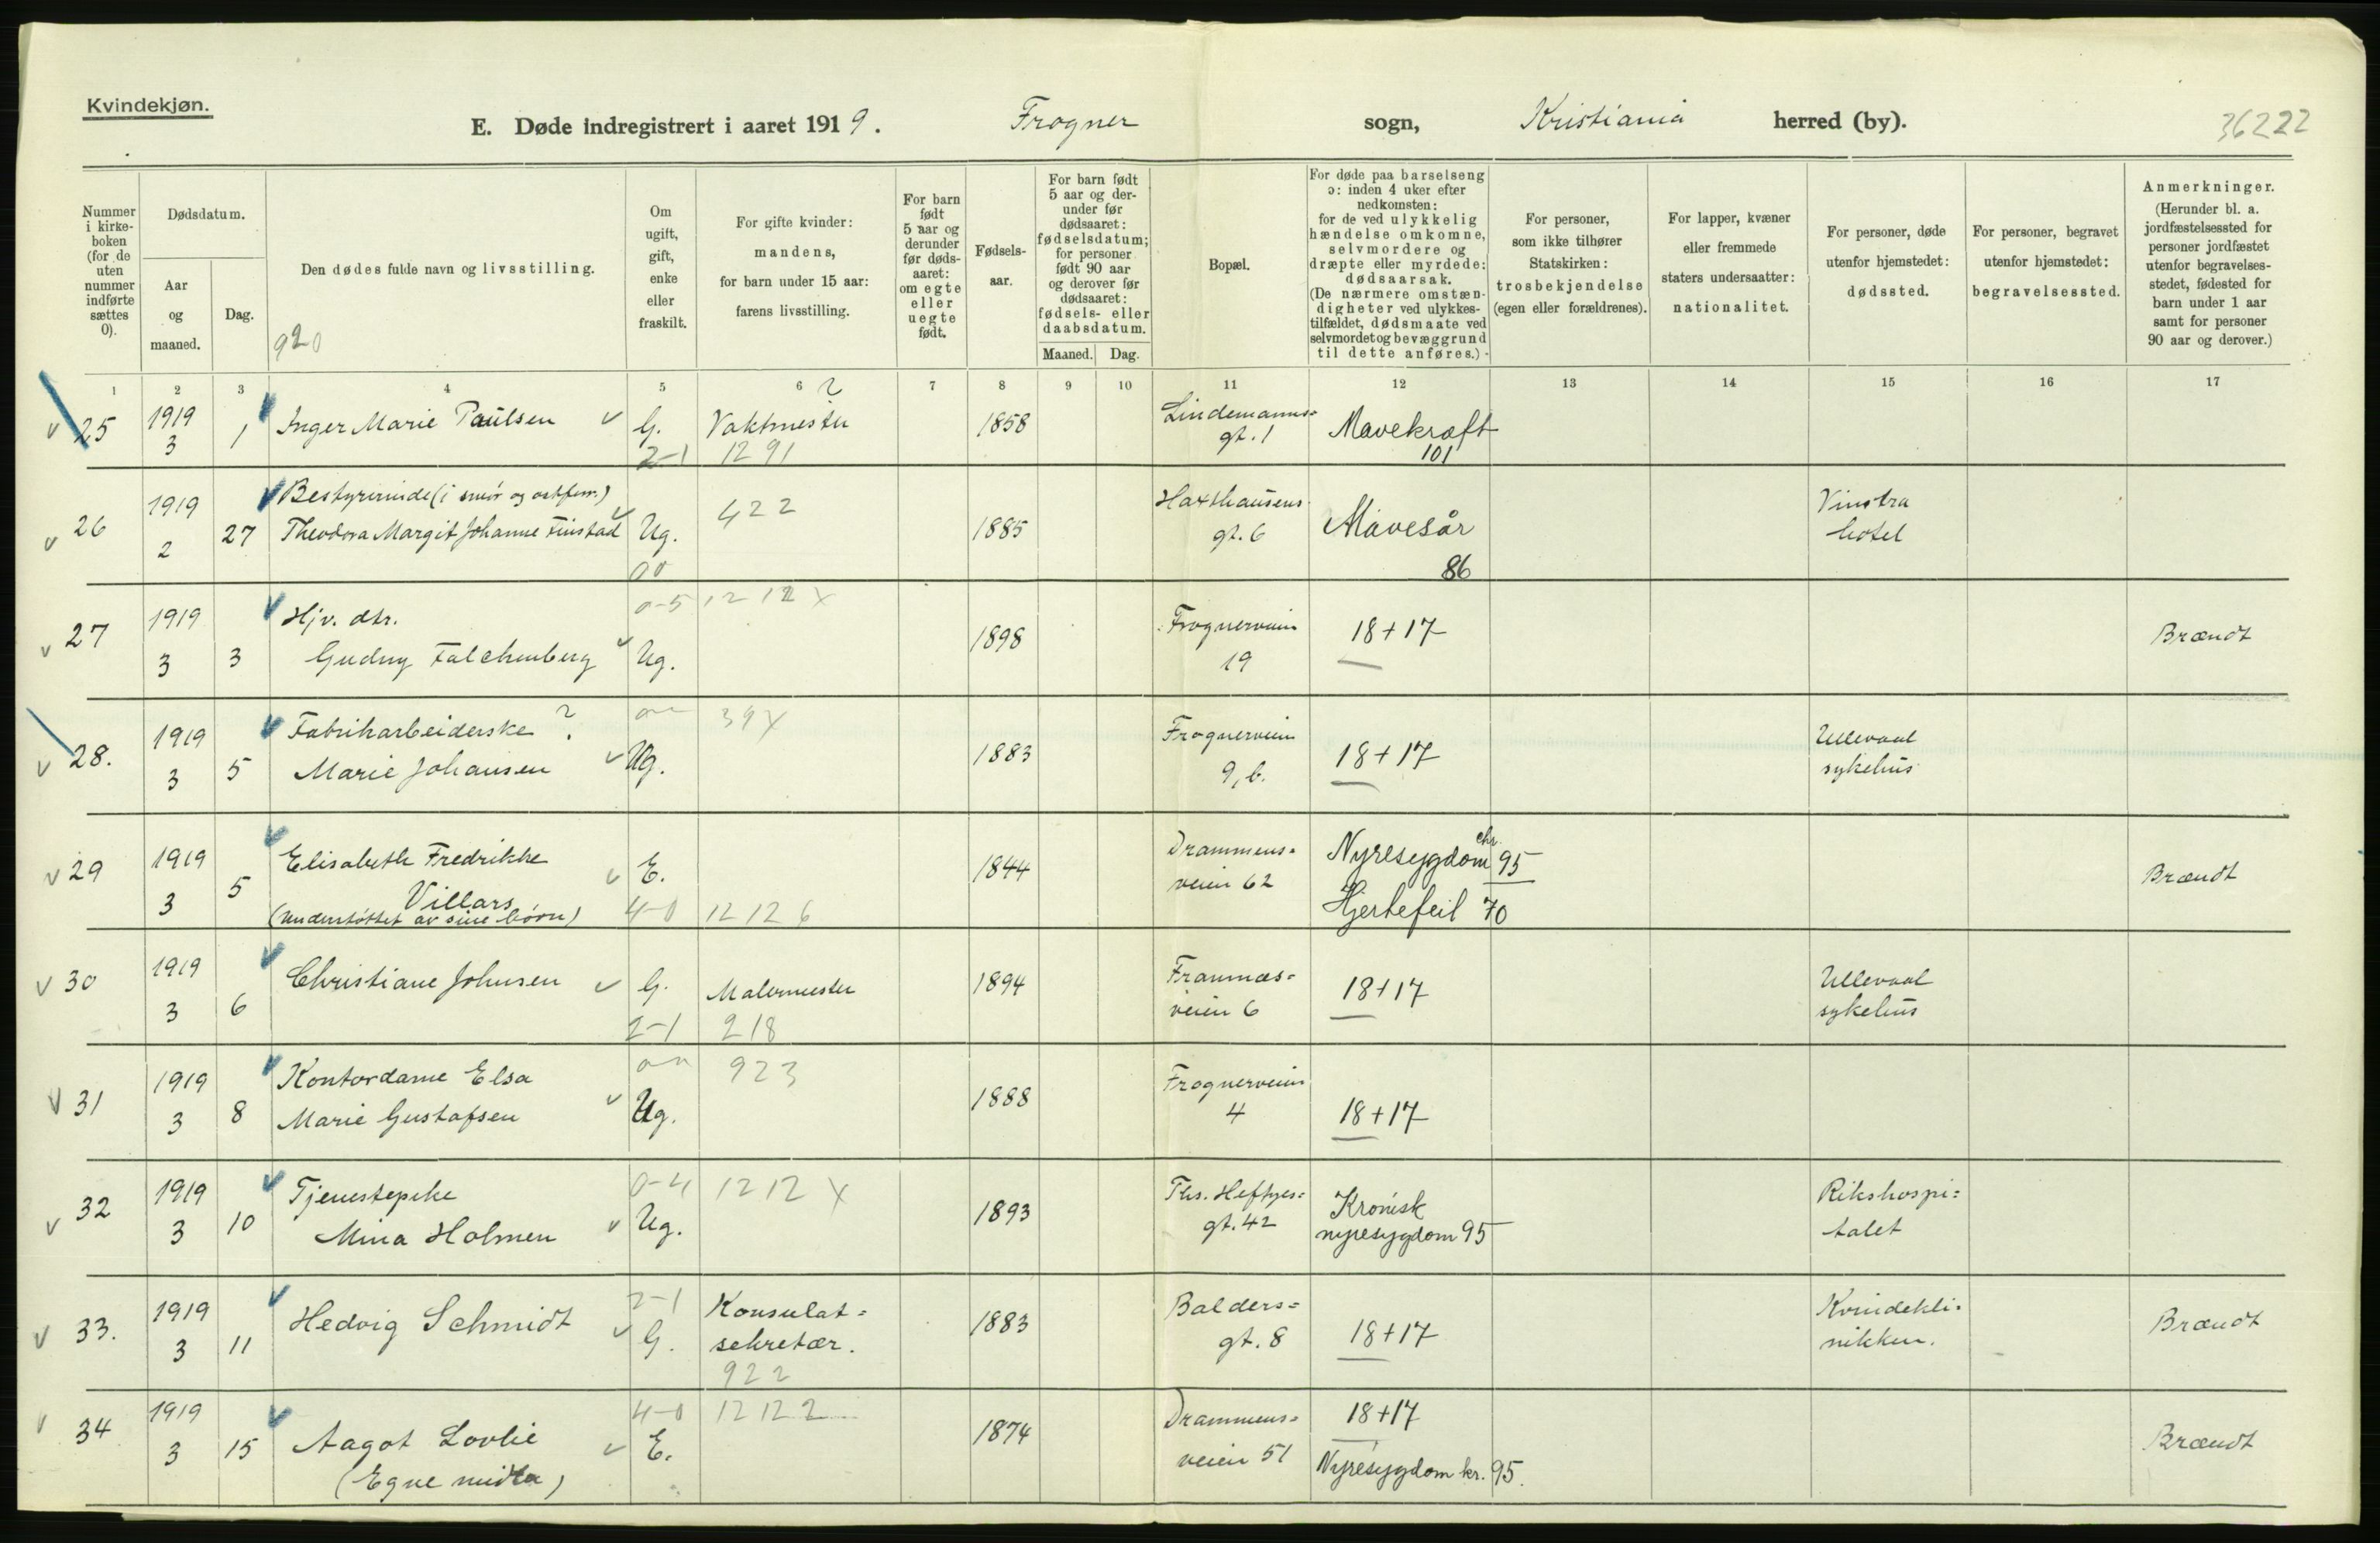 Kvindekjøn.
E. Døde indregistrert i aaret 1919. Frogner sogn, Kristiania herred (by). 36222
Nummer i kirkeboken (for de uten nummer indførte sættes 0).
Dødsdatum.
Aar og maaned.
Dag.
Den dødes fulde navn og livsstilling.
920
Om ugift, gift, enke eller fraskilt.
For gifte kvinder: mandens, for barn under 15 aar: farens livsstilling.
For barn født 5 aar og derunder før dødsaaret: om egte eller uegte født.
Fødselsaar.
For barn født 5 aar og derunder før dødsaaret: fødselsdatum; for personer født 90 aar og derover før dødsaaret: fødsels- eller daabsdatum.
Maaned. Dag.
Bopæl.
For døde paa barselseng ɔ: inden 4 uker efter nedkomsten: for de ved ulykkelig hændelse omkomne, selvmordere og dræpte eller myrdede: dødsaarsak. (De nærmere omstændigheter ved ulykkestilfældet, dødsmaate ved selvmordet og bevæggrund til dette anføres.)
For personer, som ikke tilhører Statskirken: trosbekjendelse (egen eller forældrenes).
For lapper, kvæner eller fremmede staters undersaatter: nationalitet.
For personer, døde utenfor hjemstedet: dødssted.
For personer, begravet utenfor hjemstedet: begravelsessted.
Anmerkninger. (Herunder bl. a. jordfæstelsessted for personer jordfæstet utenfor begravelsesstedet, fødested for barn under 1 aar samt for personer 90 aar og derover.)
1 2 3 4 5 6 7 8 9 10 11 12 13 14 15 16 17
25 1919 3 1 Inger Marie Paulsen G. Vaktmester 1858 Lindemanns= gt. 1 Mavekræft
2-1 1291 101
26 1919 2 27 Bestyrerinde (i smør og ostforr.)
Theodora Margit Johanne Finstad Ug. 422 1885 Haxthausens gt. 6 Mavesår 86 Vinstra hotel
27 1919 3 3 Hjv. dtr.
Gudny Falchenberg Ug. 0-5 12 12 X 1898 Frognerveien 19 18+17 Brændt
28. 1919 3 5 Fabrikarbeiderske ?
Marie Johansen Ug. 39 X 1883 Frognerveien 9, b. 18+17 Ullevaal sykehus
29 1919 3 5 Elisabeth Fredrikke
Villars E. 1844 Drammens= veien 62 Nyresygdom chr. 95 Brændt
(Understøttet av sine børn) 4-0 12 12 6 Hjertefeil 70
30 1919 3 6 Christiane Johnsen G. Malermester 1894 Framnæs= veien 6 18+17 Ullevaal sykehus
2-1 218
31 1919 3 8 Kontordame Elsa
Marie Gustafsen Ug. 923 1888 Frognerveien 4 18+17
32 1919 3 10 Tjenestepike
Mina Holmen Ug. 0-4 12 12 X 1893 Ths. Heftyes= gt. 42 Kronisk nyresygdom 95 Rikshospi= talet
33. 1919 3 11 Hedvig Schmidt 2-1 G. Konsulat= sekretær. 922 1883 Balders= gt. 8 18+17 Kvindekli= nikken. Brændt
34 1919 3 15 Aagot Lovlie 4-0 E. 12 12 2 1874 Drammens= veien 51 18+17 Brændt
(Egne midler) Nyresygdom kr. 95.